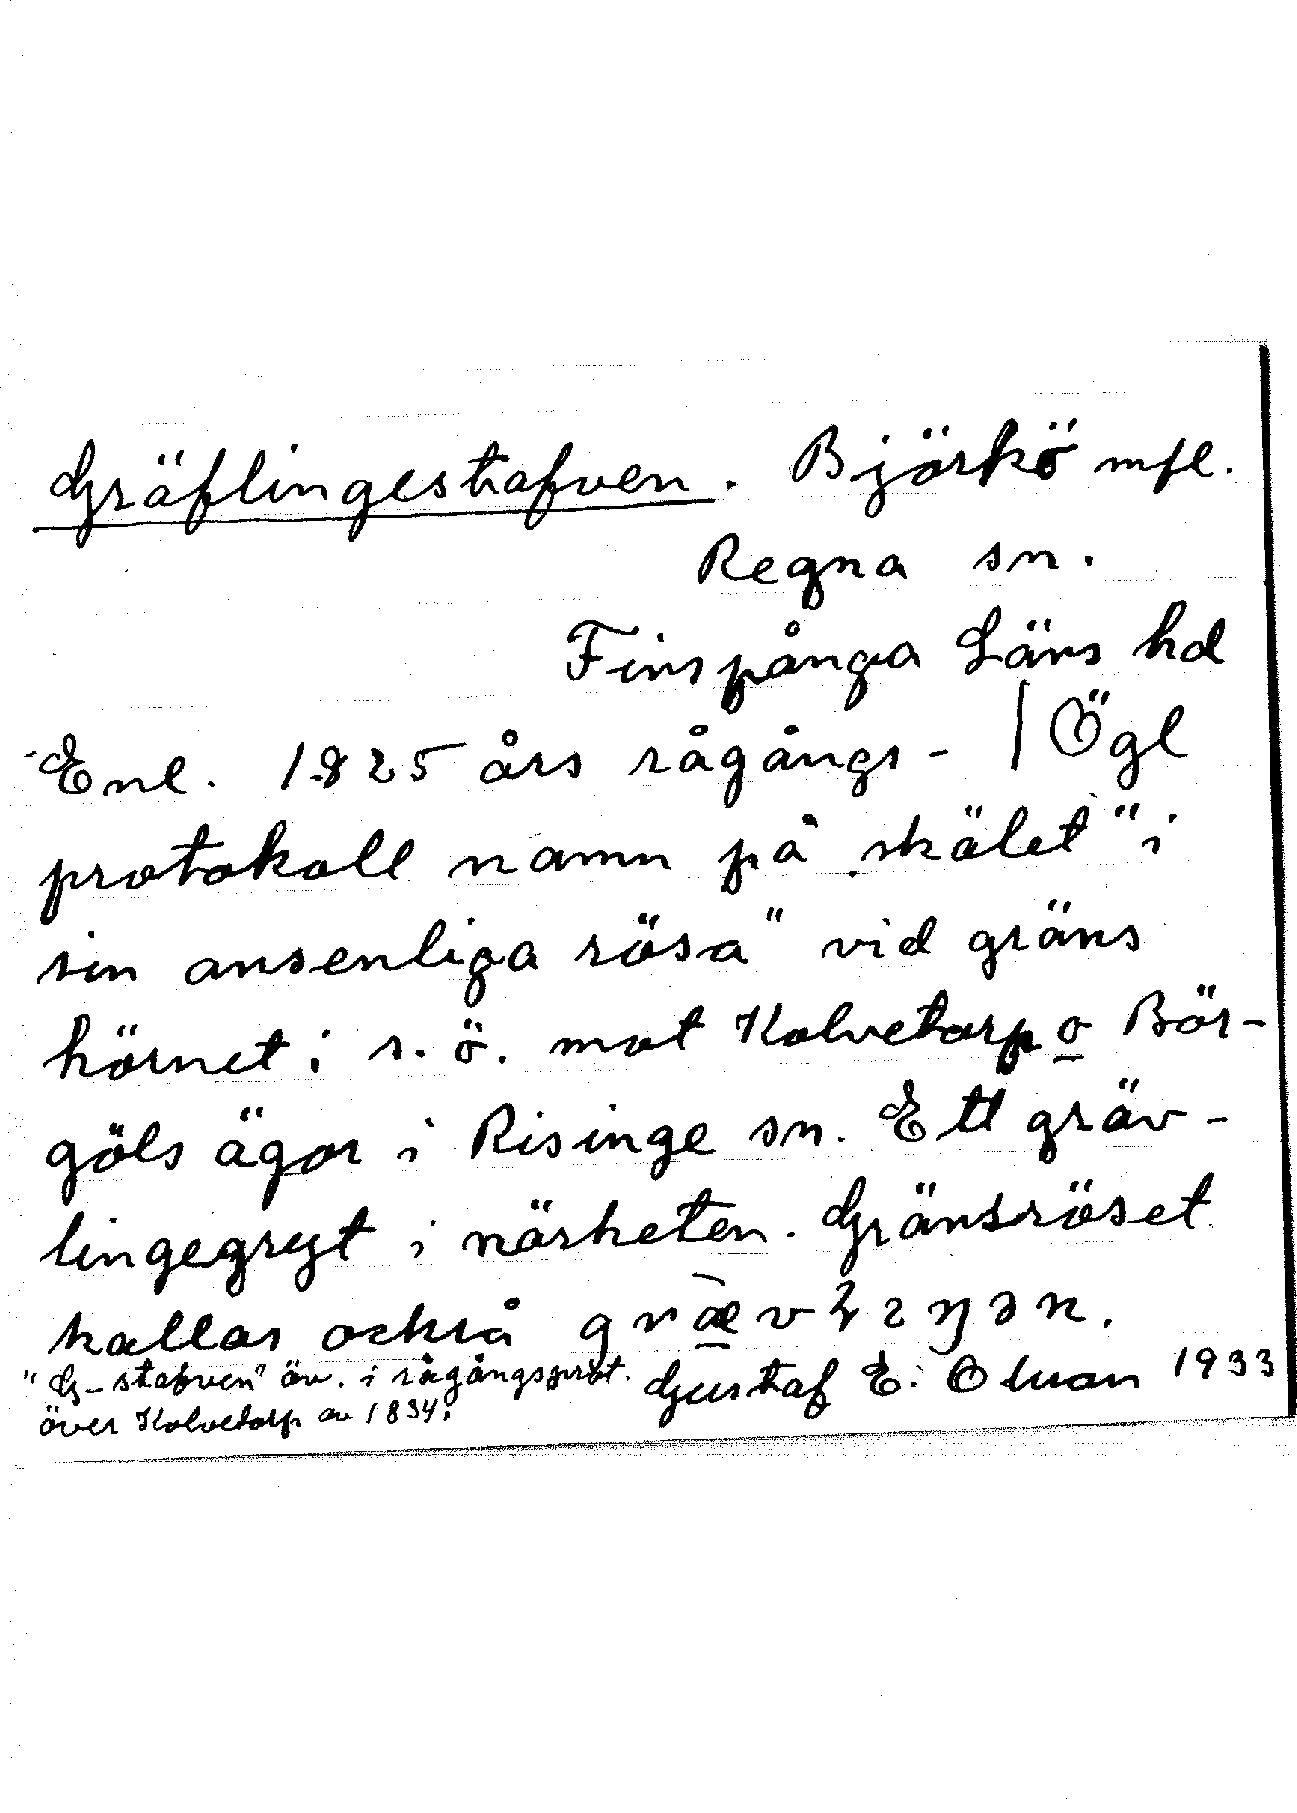 Gräflingestafven. Björkö mfl.
Regna sn.
Finspånga Läns hd
Enl. 1825 års rågångs- | Ögl
protokoll namn på "skälet" i
sin ansenliga rösa" vid gräns
hörnet i s. ö. mot Kolvetorp o Bör-
göls ägor i Risinge sn. Ett gräv-
lingegryt i närheten. Gränsröset
kallas också
"G-stafven" äv. i rågångsprot. Gustaf E. Olson 1933
över Kolvetorp av 1834.